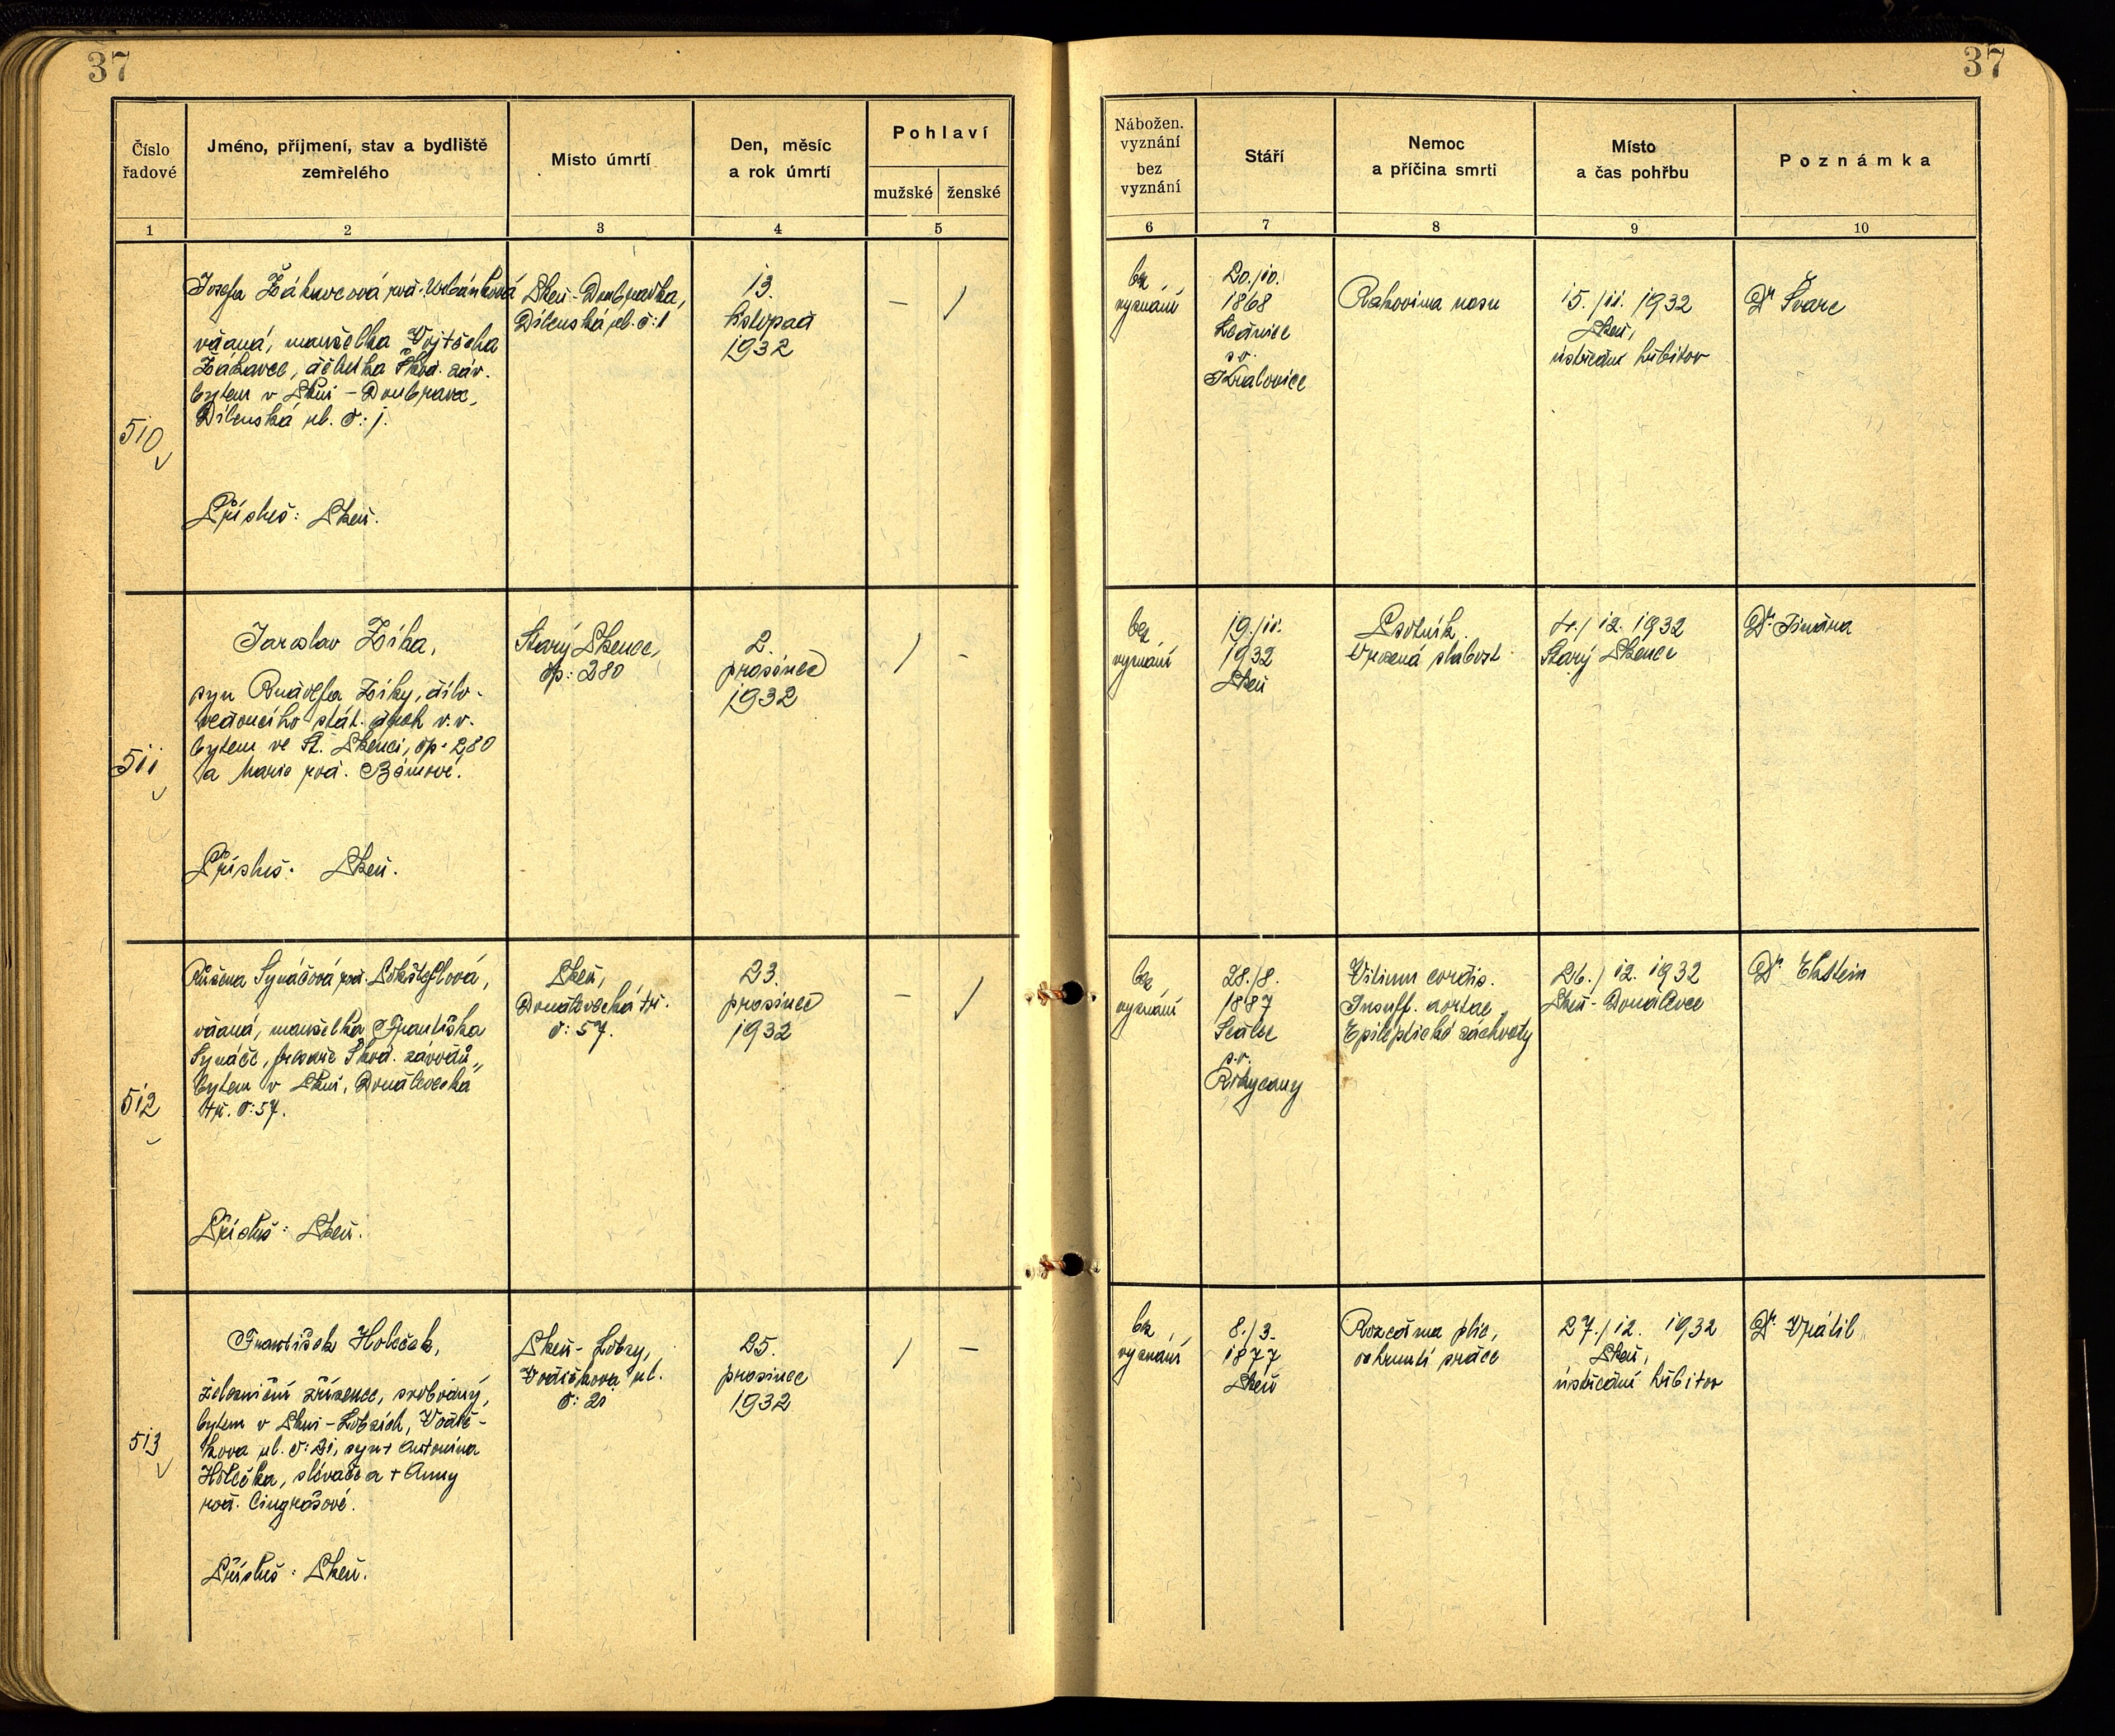 37
37
Číslo
řadové
Jméno, příjmení, stav a bydliště
zemřelého
Místo úmrtí
Den, měsíc
a rok úmrtí
Pohlaví
mužské
ženské
Nábožen.
vyznání
bez
vyznání
Stáří
Nemoc
a příčina smrti
Místo
a čas pohřbu
Poznámka
1
2
3
4
5
6
7
8
9
10
510
Josefa Žákovcová roz. Urbánková
vdaná, manželka Vojtěcha
Žákavce, dělníka Škod. záv.
bytem v Plzni - Doubravce,
Dílenská ul. č: 1.
Přísluš: Plzeň.
Plzeň - Doubravka,
Dílenská ul. č: 1
13.
listopad
1932
–
/
bez
vyznání
20./10.
1868
Lednice
s. o.
Kralovice
Rakovina nosu
15./11. 1932
Plzeň,
ústřední hřbitov
Dr Švarc
511
Jaroslav Zíka,
syn Rudolfa Zíky, dílo-
vedoucího stát. drah v. v.
bytem ve St. Plzenci, čp. 280
a Marie roz. Bémové.
Přísluš: Plzeň.
Starý Plzenec,
čp: 280
2.
prosinec
1932
/
–
bez
vyznání
19./11.
1932
Plzeň
Psotník.
Vrozená slabost
4./12. 1932
Starý Plzenec
Dr
512
Růžena Synáčová roz.
vdaná, manželka Františka
Synáče, Škod. závodů,
bytem v Plzni, Doudlevecká
tř. č: 57.
Přísluš: Plzeň.
Plzeň,
Doudlevecká tř.
č: 57.
23.
prosinec
1932
–
/
bez
vyznání
28./8.
1887
p. o.
Rokycany
Vitium cordis.
Insuff. aortae
Epileptické záchvaty
26./12. 1932
Plzeň - Doudlevce
Dr Ekstein
513
František Holeček,
železniční zřízenec, svobodný,
bytem v Plzni - Lobzích, Vodič-
kova ul. č: 21, syn + Antonína
Holečka, slévače a + Anny
roz. Cingrošové.
Přísluš: Plzeň.
Plzeň - Lobzy,
Vodičkova ul.
č: 21
25.
prosinec
1932
/
–
bez
vyznání
8./3.
1877
Plzeň
Rozedma plic,
ochrnutí srdce
27./12. 1932
Plzeň,
ústřední hřbitov
Dr Vrátil